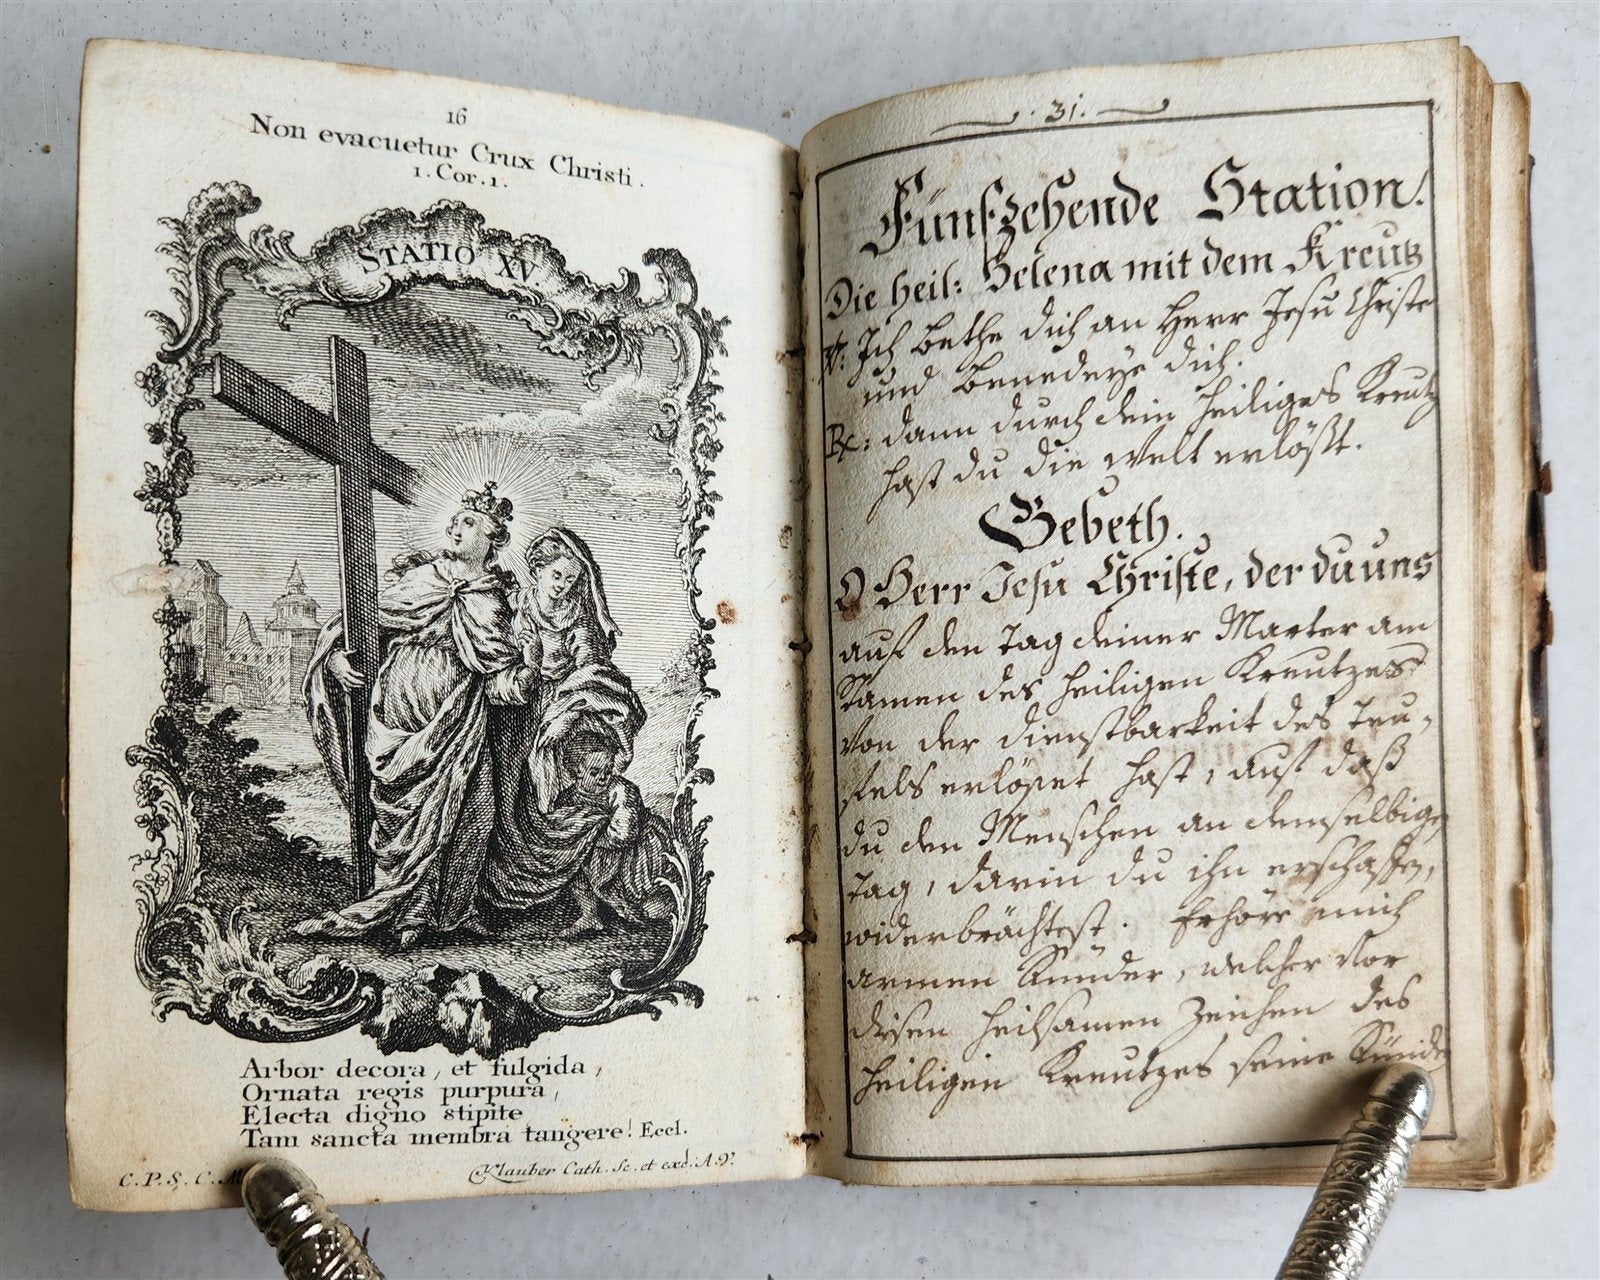 16
Non evacuetur Crux Christi.
1. Cor. 1.
STATIO XV.
Arbor decora, et fulgida,
Ornata regis purpura,
Electa digno stipite
Tam sancta membra tangere! Eccl.
C. P. S. C. M.
Klauber Cath. Sc. et exc. A. V.
31.
Fünfzehende Station.
Die heil: Helena mit dem Kreutz
℣: Ich bethe dich an Herr Jesu Christe
und benedeye dich.
℞: dann durch dein heiliges Kreutz
hast du die Welt erlößt.
Gebeth.
O Herr Jesu Christe, der du uns
auf den Tag deiner Marter am
Stamen des heiligen Kreutzes
von der dienstbarkeit des Teu-
fels erlöset hast, auf daß
du den Menschen an demselbigen
Tag, darin du ihn erschaffen,
widerbrächtest. Erhöre mich
armen Sünder, welcher vor
disen heilsamen Zeichen des
heiligen Kreutzes seine